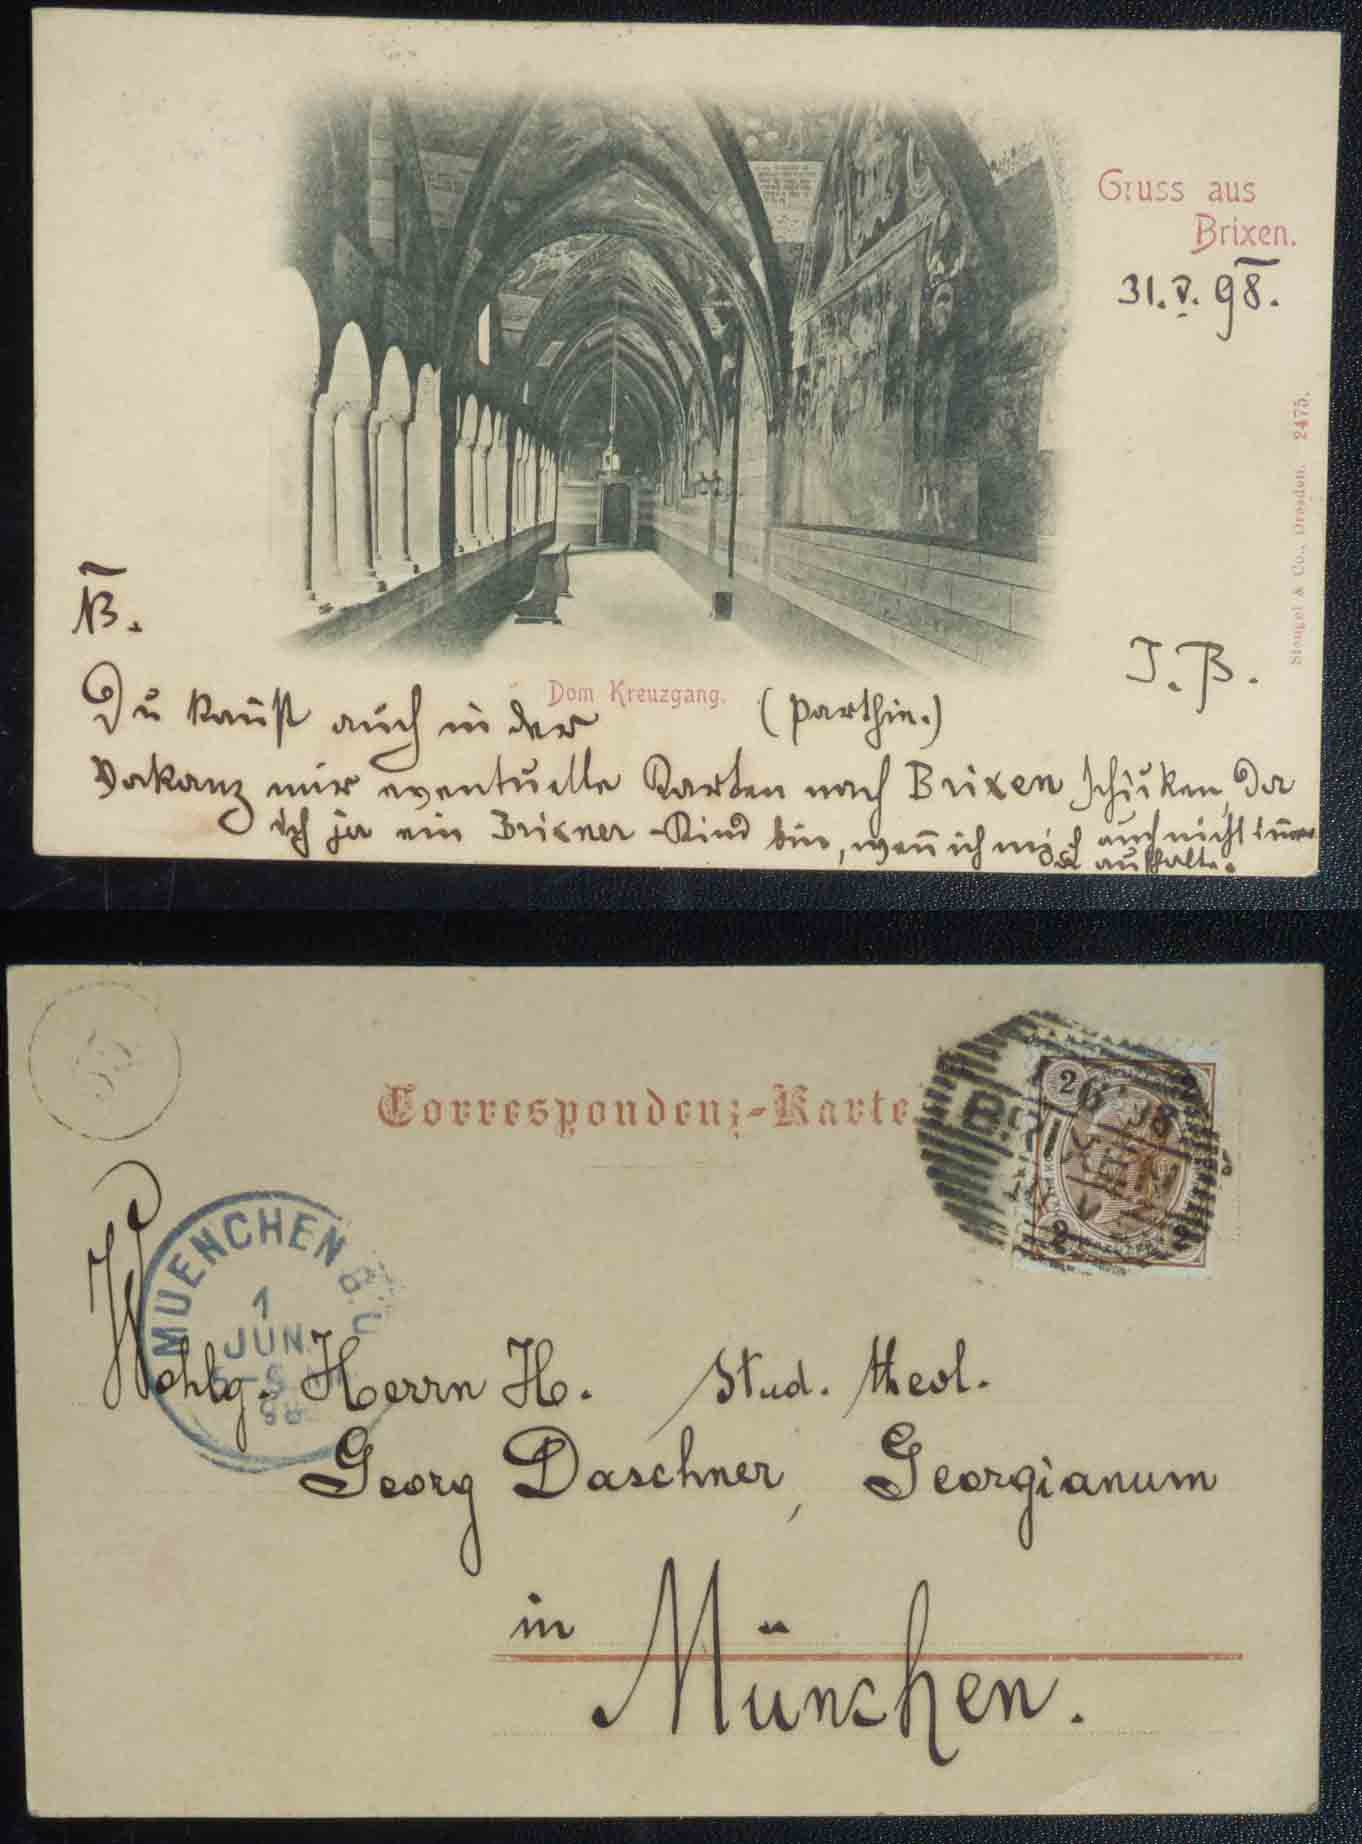 Gruss aus
Brixen.
31. V. 98.
Stengel & Co., Dresden. 2475.
NB.
J. B.
Dom Kreuzgang.
Du kannst auch in der (Parthie.)
Vakanz mir eventuelle Karten nach Brixen schicken, da
ich ja ein Brixner-Kind bin, wenn ich mich auch nicht immer
da aufhalte.
55
Correspondenz-Karte
2
BRIXEN
2 2
MUENCHEN B.C.
1
JUN.
98
Wohlg. Herrn H. Stud. theol.
Georg Daschner, Georgianum
in
München.